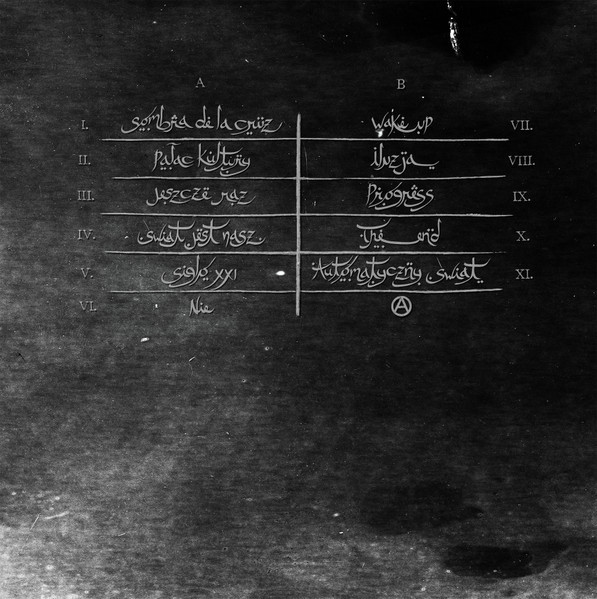 A B
I. sombra de la cruz wake up VII.
II. pałac kultury iluzja VIII.
III. jeszcze raz Progress IX.
IV. świat jest nasz the end X.
V. siglo XXI Automatyczny świat XI.
VI. Nie Ⓐ